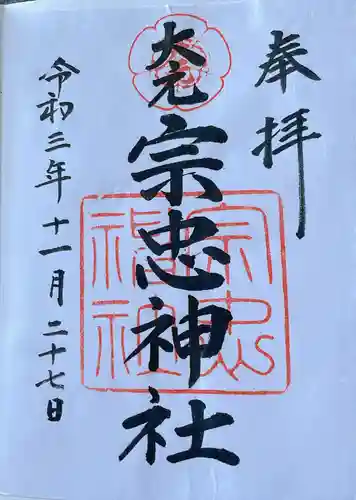 奉拝
大元
宗忠神社
宗忠
神社
令和三年十一月二十七日